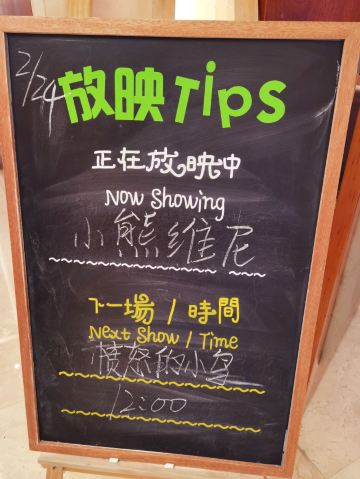 2/24
放映Tips
正在放映中
Now Showing
小熊維尼
下一場 / 時間
Next Show / Time
憤怒的小鳥
12:00